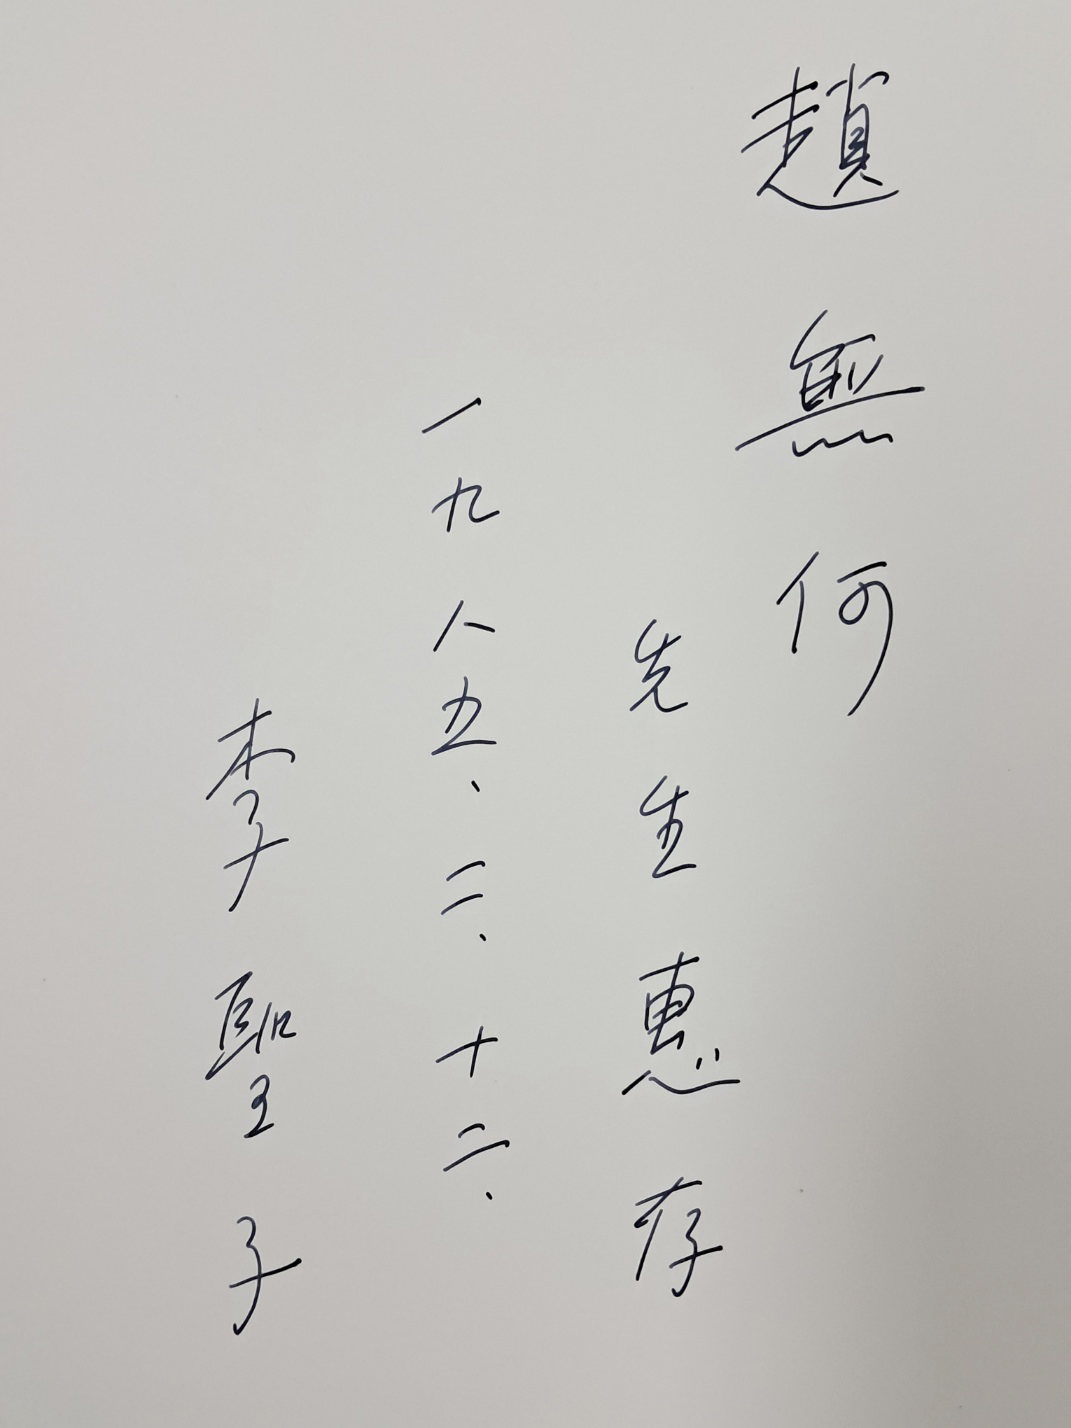 趙無何
先生惠存
一九八五、二、十二、
李聖子